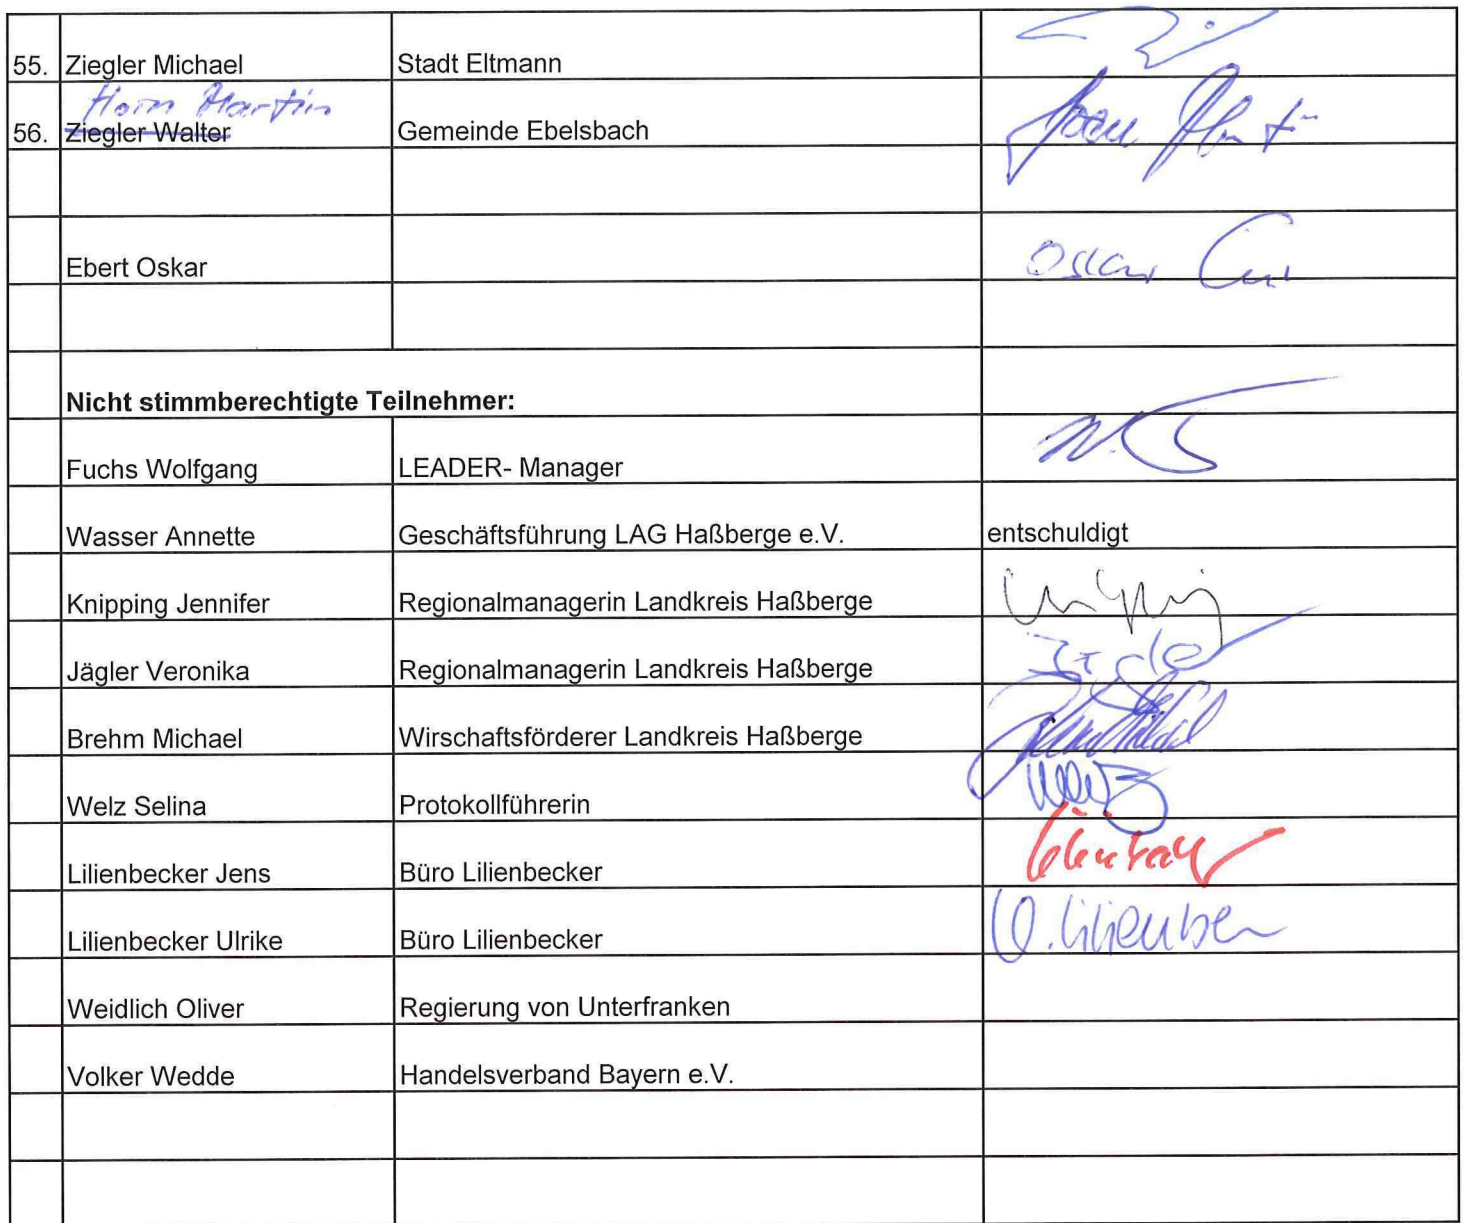 55. Ziegler Michael Stadt Eltmann
Horn Martin
56. Ziegler Walter Gemeinde Ebelsbach Horn Martin
Ebert Oskar Oskar
Nicht stimmberechtigte Teilnehmer:
Fuchs Wolfgang LEADER- Manager
Wasser Annette Geschäftsführung LAG Haßberge e.V. entschuldigt
Knipping Jennifer Regionalmanagerin Landkreis Haßberge
Jägler Veronika Regionalmanagerin Landkreis Haßberge
Brehm Michael Wirschaftsförderer Landkreis Haßberge
Welz Selina Protokollführerin
Lilienbecker Jens Büro Lilienbecker
Lilienbecker Ulrike Büro Lilienbecker
Weidlich Oliver Regierung von Unterfranken
Volker Wedde Handelsverband Bayern e.V.